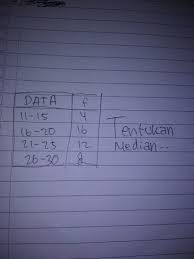 DATA f
11-15 4
16-20 16
21-25 12
26-30 8
Tentukan
Median...